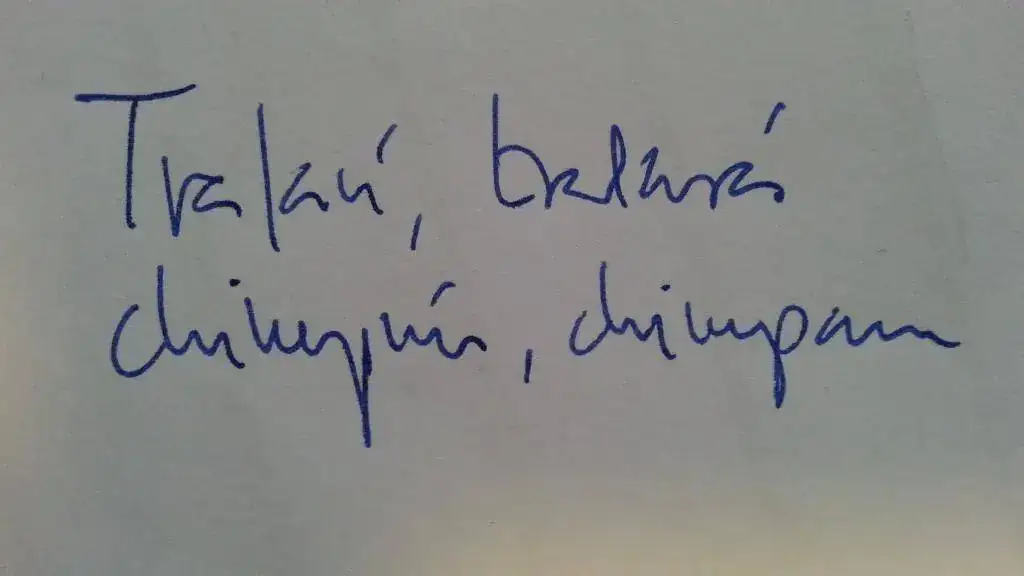 Tralarí, tralará
chimpún, chimpam